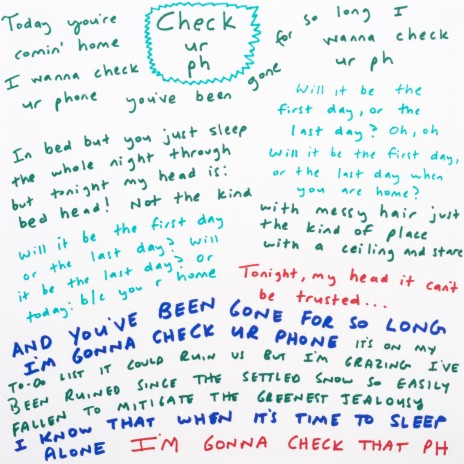 Check
ur
ph
Today you're
comin' home
I wanna check
ur phone you've been
gone for so long I
wanna check
ur ph
Will it be the
first day, or the
last day? Oh, oh
Will it be the first day,
or the last day when
you are home?
In bed but you just sleep
the whole night through
but tonight my head is:
bed head! Not the kind
with messy hair just
the kind of place
with a ceiling and stare
Will it be the first day
or the last day? Will
it be the last day? or
today: b/c you r home
Tonight, my head it can't
be trusted...
AND YOU'VE BEEN GONE FOR SO LONG
I'M GONNA CHECK UR PHONE IT'S ON MY
TO-DO LIST IT COULD RUIN US BUT I'M GRAZING I'VE
BEEN RUINED SINCE THE SETTLED SNOW SO EASILY
FALLEN TO MITIGATE THE GREENEST JEALOUSY
I KNOW THAT WHEN IT'S TIME TO SLEEP
ALONE I'M GONNA CHECK THAT PH